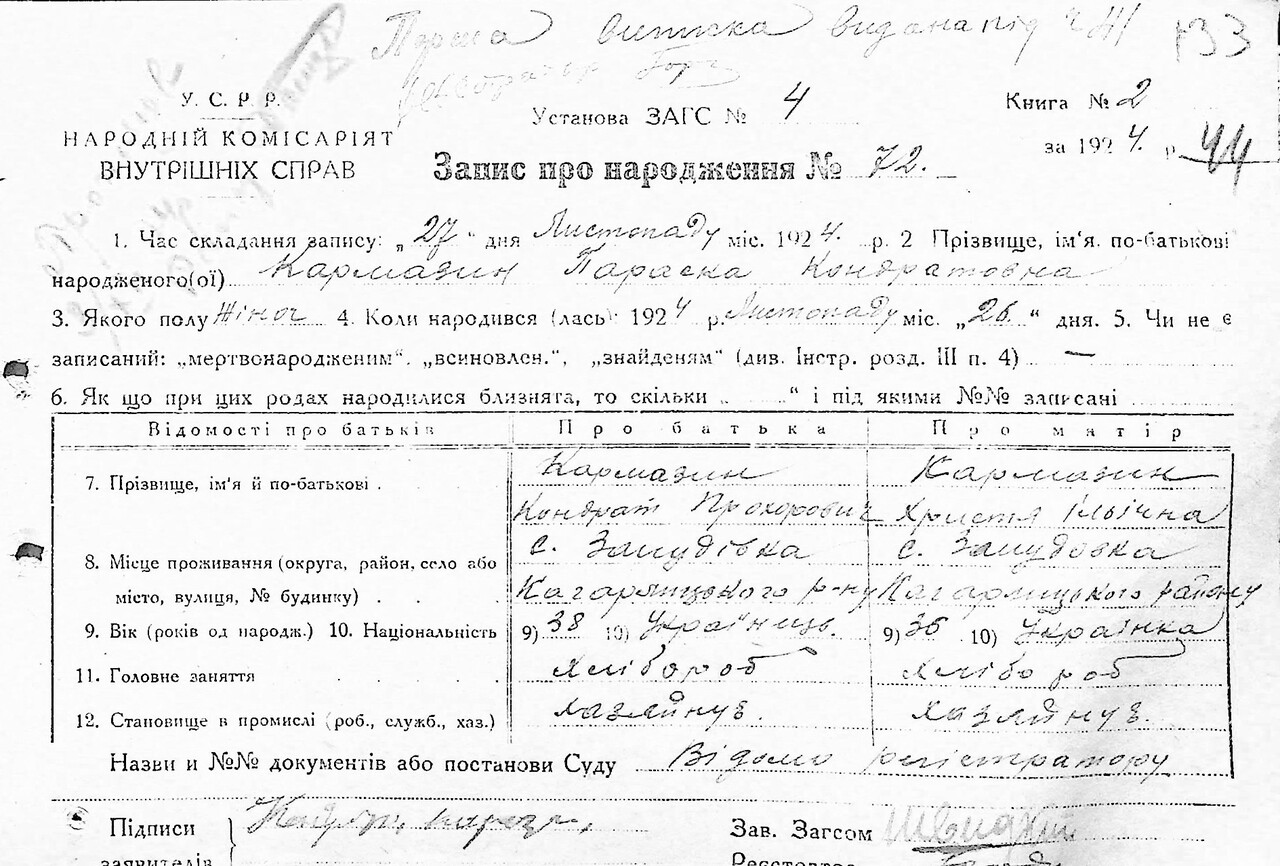 Перша виписка видана під ч
133
У. С. Р. Р.
НАРОДНІЙ КОМІСАРІЯТ
ВНУТРІШНІХ СПРАВ
Установа ЗАГС № 4
Книга № 2
за 1924. р. 44
Запис про народження № 72.
1. Час складання запису: „27“ дня Листопаду міс. 1924. р. 2 Прізвище, ім'я. по-батькові
народженого(ої) Кармазин Параска Кондратовна
3. Якого полу Жіноч 4. Коли народився (лась): 1924 р. Листопаду міс. „26“ дня. 5. Чи не є
записаний: „мертвонародженим“. „всиновлен.“, „знайденям“ (див. Інстр. розд. III п. 4) —
6. Як що при цих родах народилися близнята, то скільки „ “ і під якими №№ записані
Відомості про батьків Про батька Про матір
7. Прізвище, ім'я й по-батькові . Кармазин Кармазин
Кондрат Прохорович Христя Ільїчна
8. Місце проживання (округа, район, село або с. Зомудівка с. Зомудовка
місто, вулиця, № будинку) . . . Кагарлицького р-ну Кагарлицького району
9. Вік (років од народж.) 10. Національність 9) 38 10) Українець. 9) 36 10) Українка
11. Головне заняття . . . . Хлібороб Хлібороб
12. Становище в промислі (роб., служб., хаз.) Хазяйнує. Хазяйнує.
Назви и №№ документів або постанови Суду Відомо регістратору
Підписи
заявителів
Зав. Загсом
Реєстратор